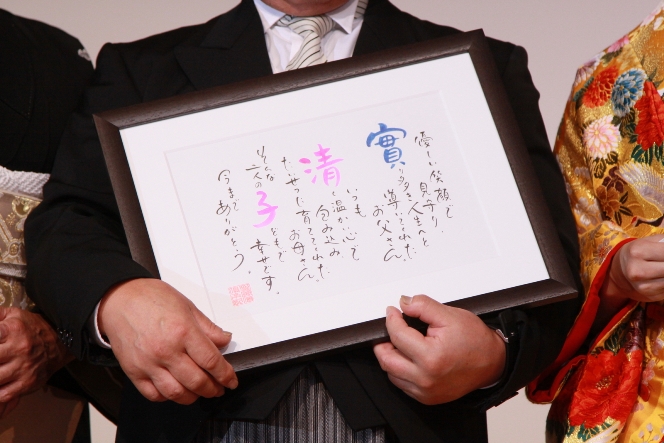 優しい笑顔で
見守り、
實り多き人生へと
導いてくれた
お父さん。
いつも
温かい心で
清
包み込み
たいせつに育ててくれた
お母さん。
そんな
二人の
子どもで
幸せです。
今まで
ありがとう。